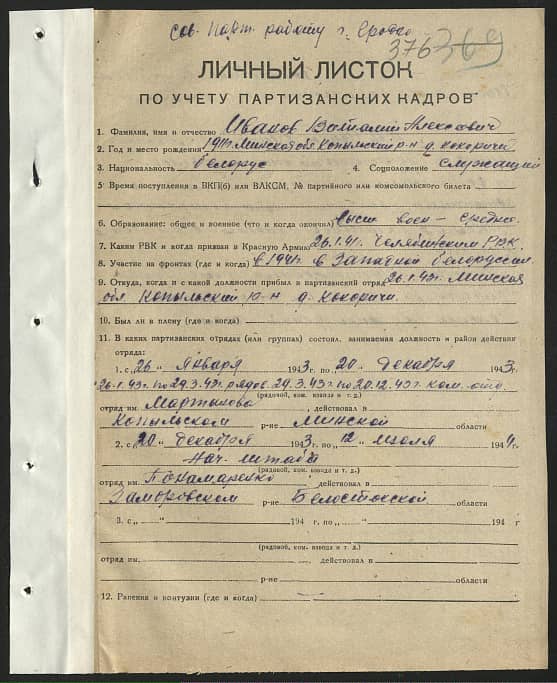 сов. парт. работу г. Гродно
376 369
ЛИЧНЫЙ ЛИСТОК
ПО УЧЕТУ ПАРТИЗАНСКИХ КАДРОВ
1. Фамилия, имя и отчество Иванов Виталий Алексеевич
2. Год и место рождения 1911 Минская обл Копыльский р-н д. Кокоричи
3. Национальность белорус 4. Соцположение служащий
5. Время поступления в ВКП(б) или ВЛКСМ, № партийного или комсомольского билета
6. Образование: общее и военное (что и когда окончил) высш. воен — среднее.
7. Каким РВК и когда призван в Красную Армию 26.1.41г. Челябинским РВК
8. Участие на фронтах (где и когда) в 1941г. в Западной Белоруссии
9. Откуда, когда и с какой должности прибыл в партизанский отряд 26.1.43г. Минская
обл. Копыльский р-н д. Кокоричи.
10. Был ли в плену (где и когда)
11. В каких партизанских отрядах (или группах) состоял, занимаемая должность и район действия
отряда:
1. с „26 “ Января 1943 г. по „20 “ декабря 1943 г.
26.1.43г. по 29.3.43г. рядов. 29.3.43г. по 20.12.43г. ком. отд.
(рядовой, ком. взвода и т. д.)
отряд им. Мартынова , действовал в
Копыльском р-не Минской области
2. с „20 “ декабря 1943 г. по „12 “ июля 1944 г.
Нач. штаба
(рядовой, ком. взвода и т. д.)
отряд им. Понамаренко действовал в
р-не Белостокской области
3. с „ “ 194 г. по „ “ 194 г
(рядовой, ком. взвода и т. д.)
отряд им. , действовал в
р-не области
12. Ранения и контузии (где и когда)